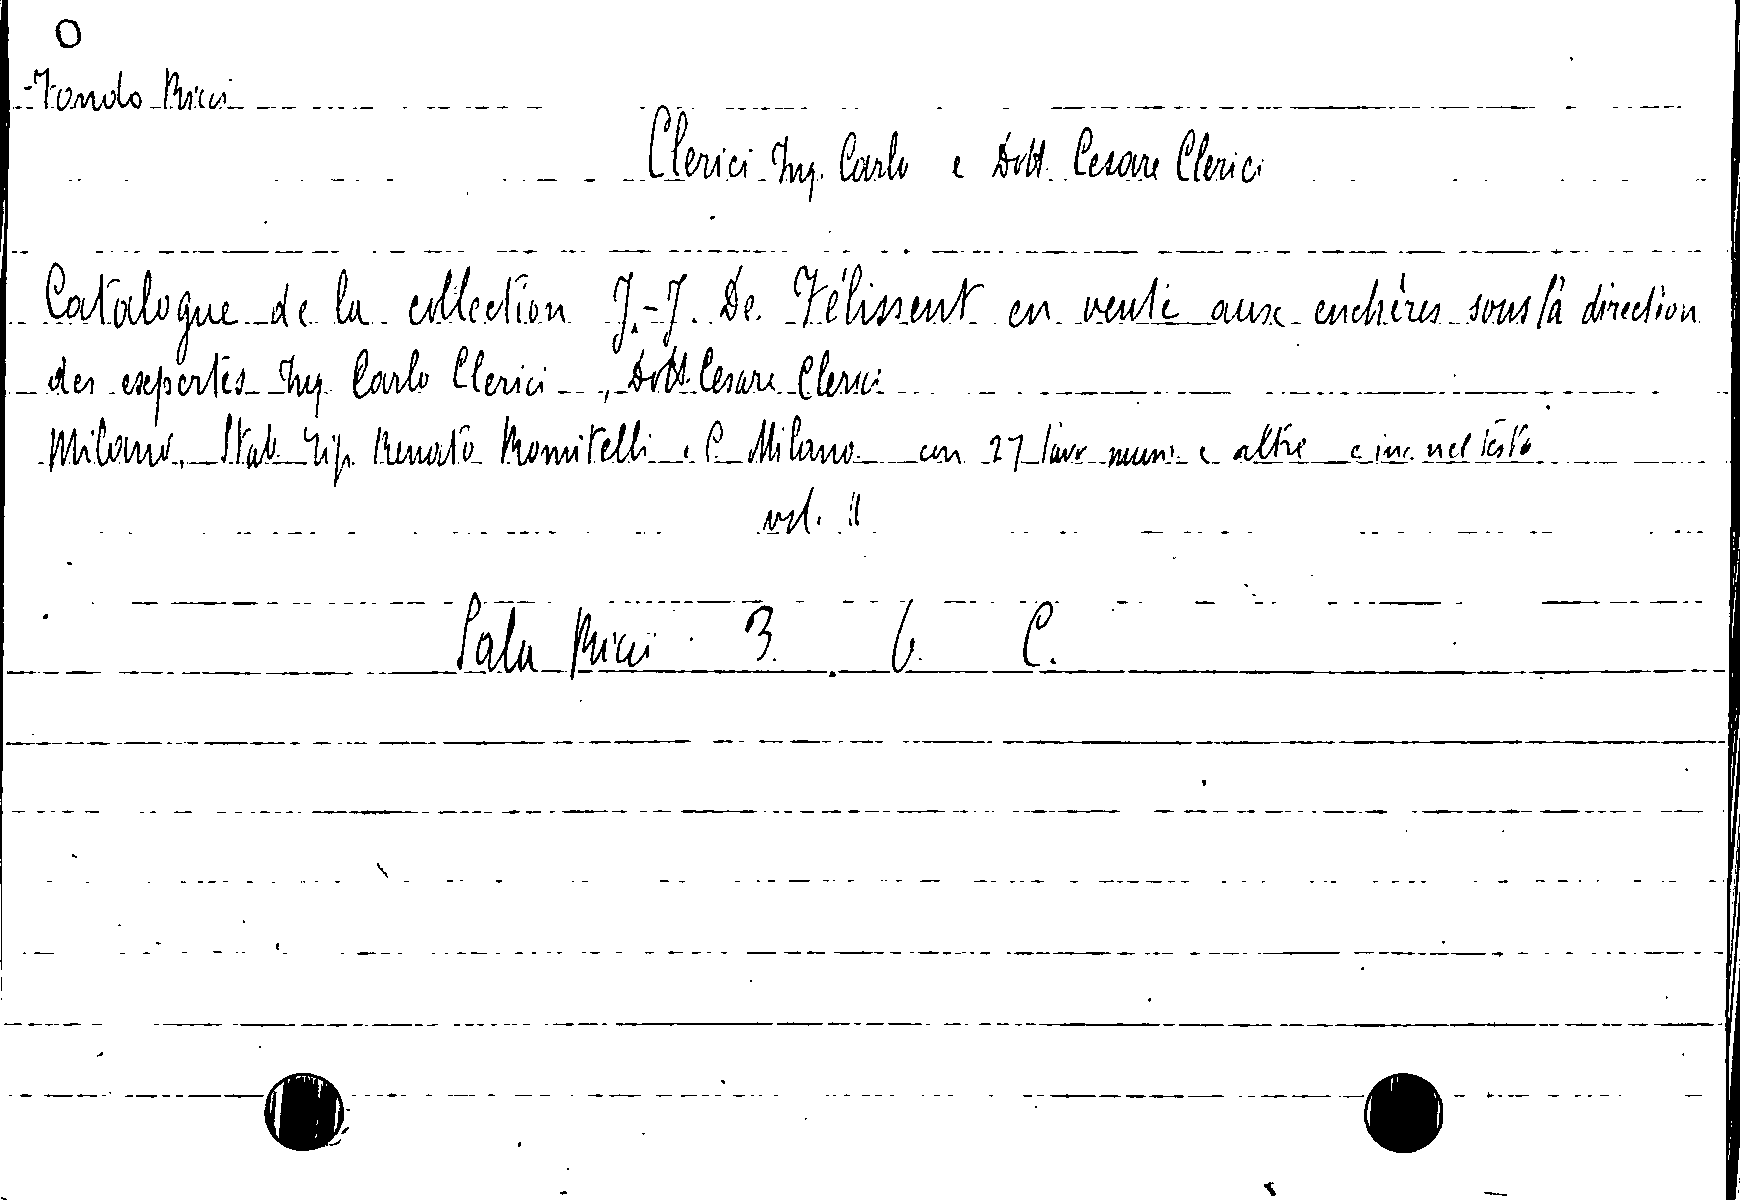 O
Fondo Ricci
Clerici Ing. Carlo e Dott. Cesare Clerici
Catalogue de la collection J.-J. De. Félissent en vente aux enchères sous la direction
des expertes Ing Carlo Clerici, Dott. Cesare Clerici
Milano, Stab. Tip. Renato Romitelli e C. Milano con 27 tavv num. e altre e inc. nel testo
vol. II
Sala Ricci 3. 6. C.